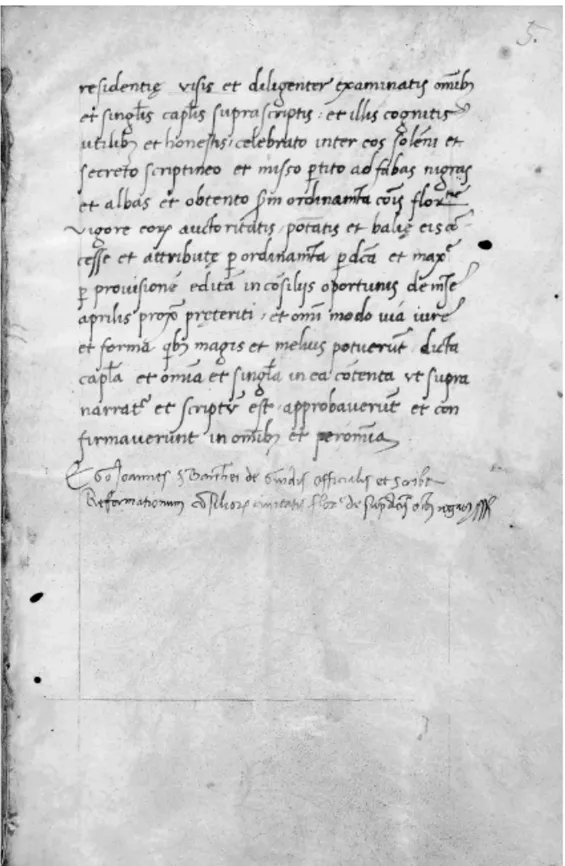 5.
residentię visis et diligenter examinatis om̄ibꝫ
et singl̄is capl̄is suprascriptis: et illis cognitis
utilibꝫ et honestis, celebrato inter eos solēni et
secreto scriptineo et misso ꝑtito ad fabas nigras
et albas et obtento s̄m ordinam̄ta cōis flor.ne
vigore eorꝝ auctoritatis, pōtatis et balię eis cō-
cesse et attributę ꝑ ordinam̄ta ꝑ dc̄a et maxe
ꝑ provisionē editā in cōsilijs oportunis de mēse
aprilis proxe pręteriti, et omī modo via iure
et forma qbꝫ magis et melius potuerūt, dicta
capl̄a et omīa et singl̄a in ea cōtenta ut supra
narrate et scriptū est, approbaverūt et con
firmaverūnt in om̄ibꝫ et per om̄ia
Ego Joannes de officialis et scriba
Reformationum cōsiliorꝝ civitatis flore de